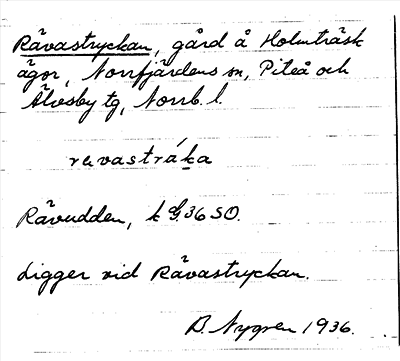 Rävastryckan, gård å Holmträsk
ägor, Norrfjärdens sn, Piteå och
Älvsby tg, Norrb. l.
rävastráka
Rävudden, k G. 36 SO.
Ligger vid Rävastryckan.
B. Nygren 1936.